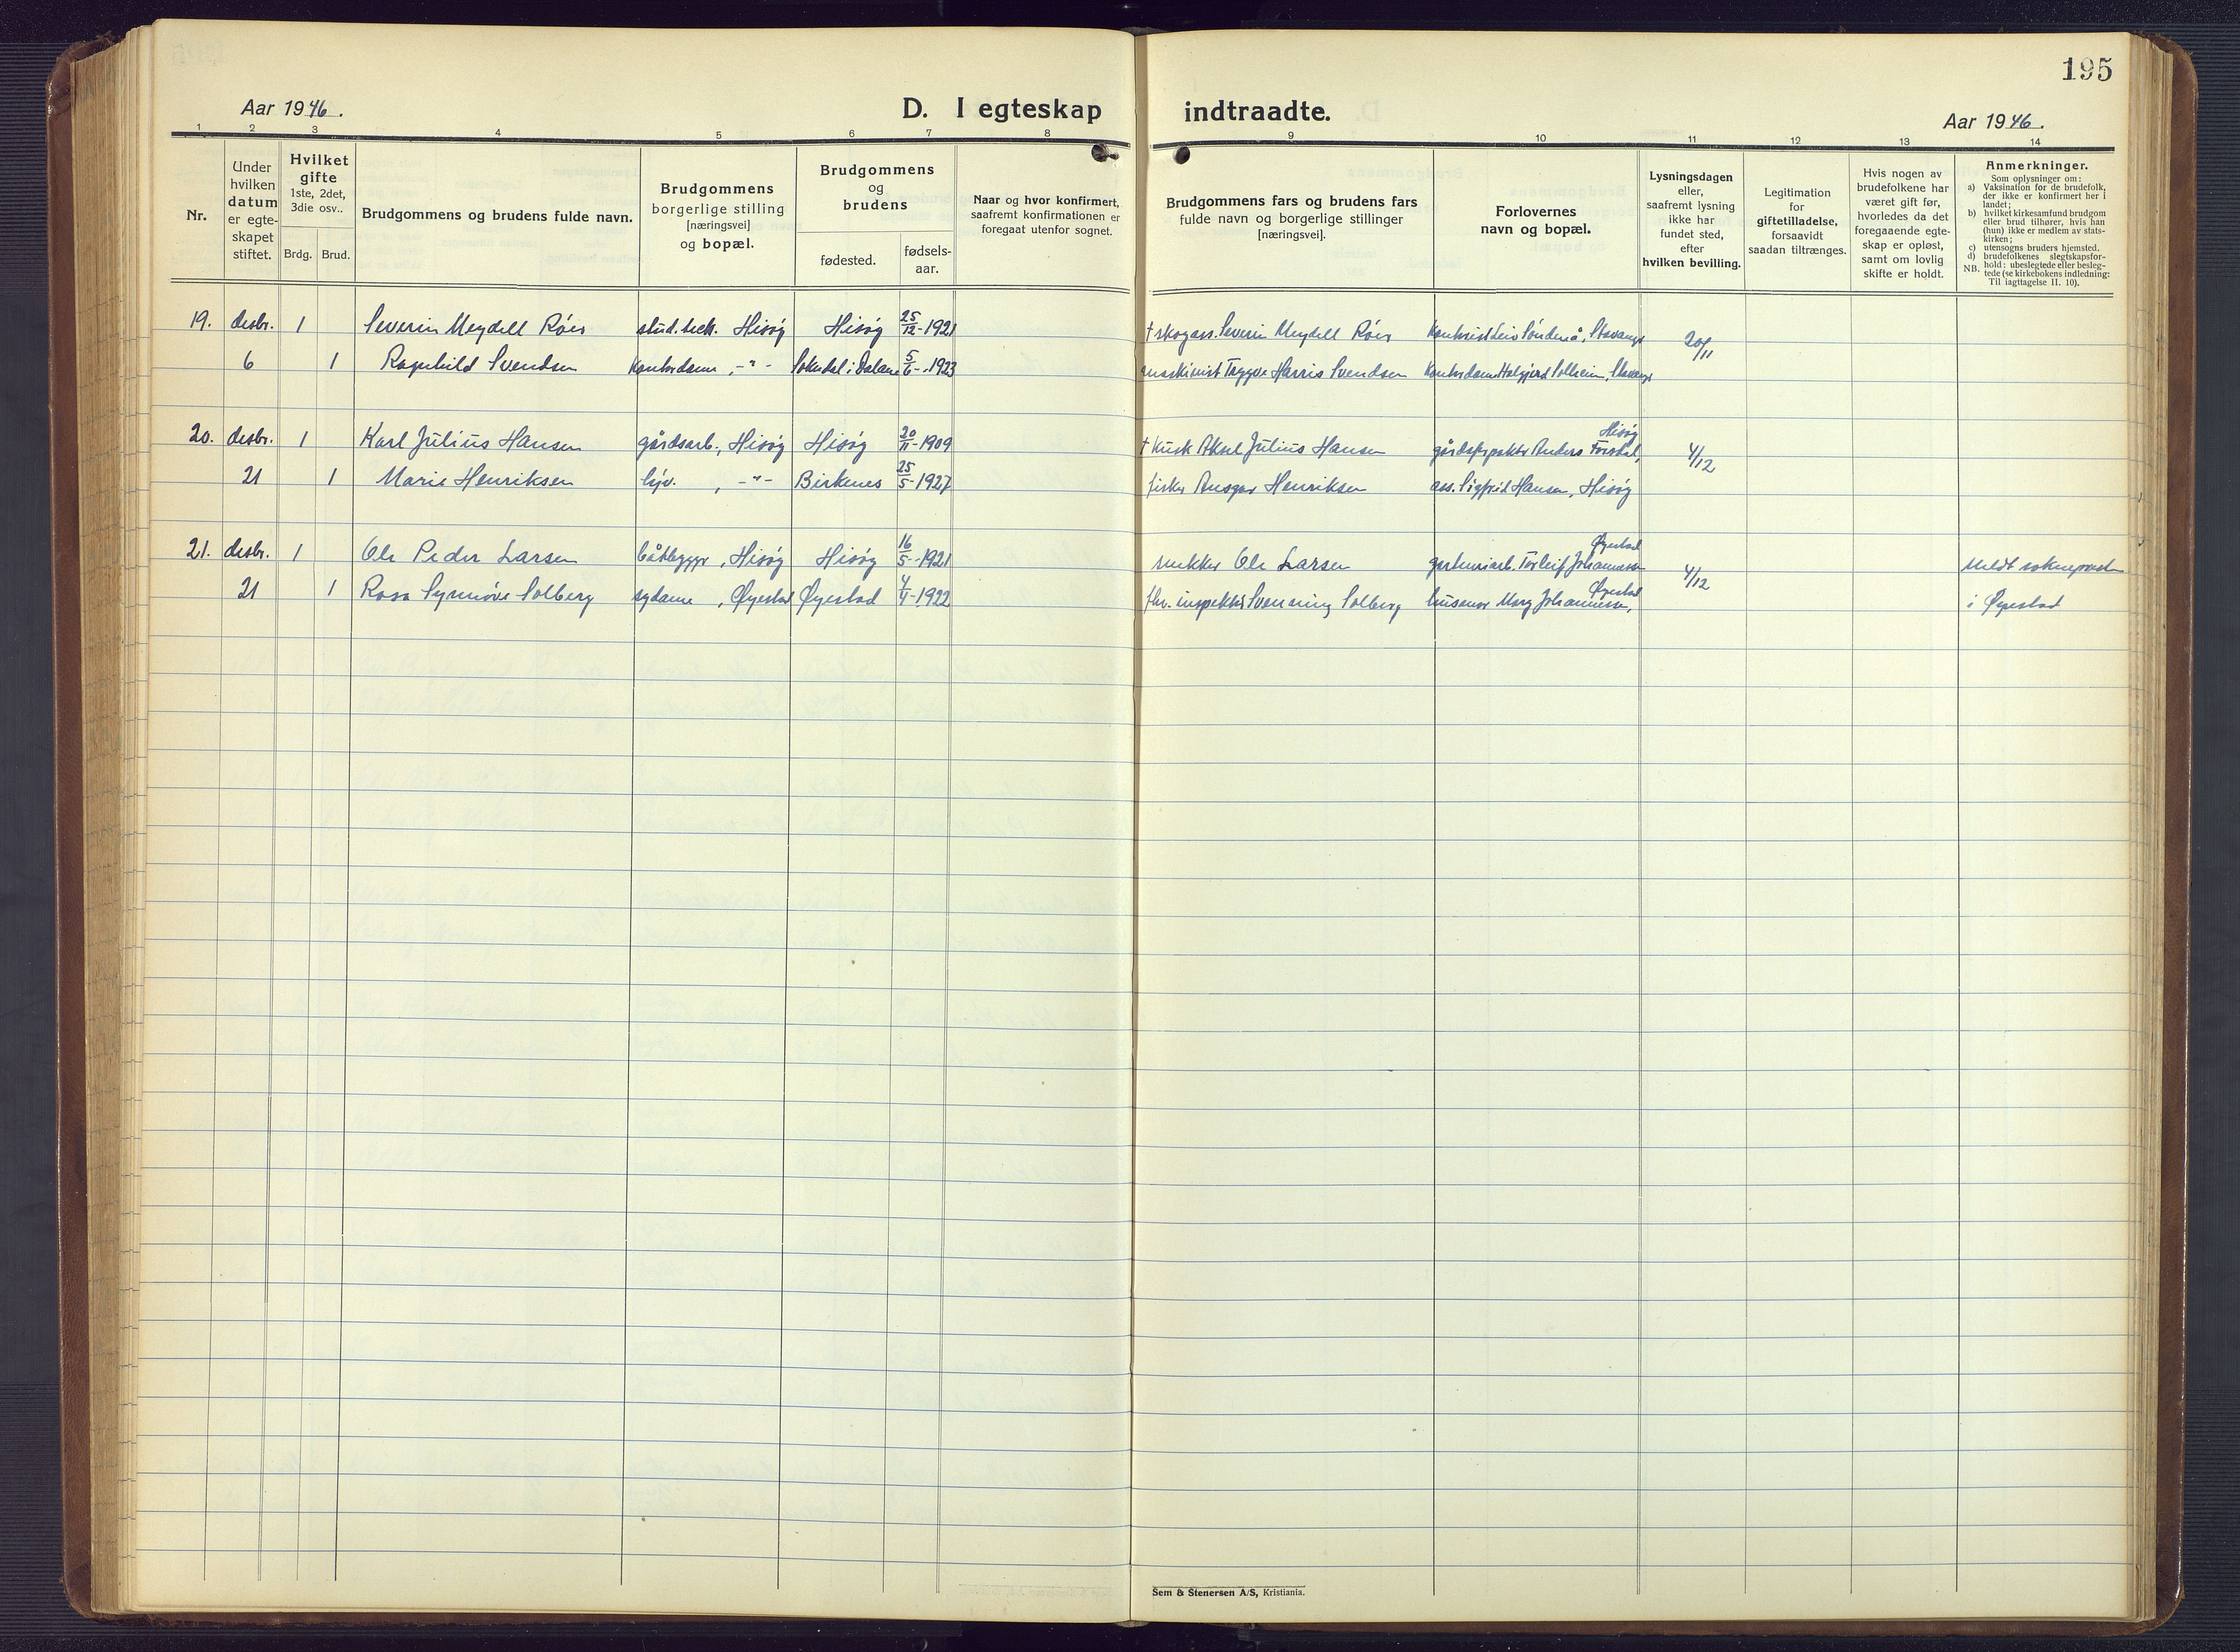 195
Aar 1946.
D. I egteskap indtraadte.
Aar 1946.
1 2 3 4 5 6 7 8 9 10 11 12 13 14
Nr.
Under hvilken datum er egteskapet stiftet.
Hvilket gifte 1ste, 2det, 3die osv..
Brdg. Brud.
Brudgommens og brudens fulde navn.
Brudgommens borgerlige stilling [næringsvei] og bopæl.
Brudgommens og brudens
fødested. fødsels-aar.
Naar og hvor konfirmert, saafremt konfirmationen er foregaat utenfor sognet.
Brudgommens fars og brudens fars fulde navn og borgerlige stillinger [næringsvei].
Forlovernes navn og bopæl.
Lysningsdagen eller, saafremt lysning ikke har fundet sted, efter hvilken bevilling.
Legitimation for giftetilladelse, forsaavidt saadan tiltrænges.
Hvis nogen av brudefolkene har været gift før, hvorledes da det foregaaende egteskap er opløst, samt om lovlig skifte er holdt.
Anmerkninger.
Som oplysninger om:
a) Vaksination for de brudefolk, der ikke er konfirmert her i landet;
b) hvilket kirkesamfund brudgom eller brud tilhører, hvis han (hun) ikke er medlem av statskirken;
c) utensogns bruders hjemsted.
d) brudefolkenes slegtskapsforhold: ubeslegtede eller beslegtede (se kirkebokens indledning: NB. Til iagttagelse II. 10).
19. desbr. 1 Severin Meydell Róer stud. tech. Hisóy Hisóy 25/12-1921 † skogass. Severin Meydell Róer kontorist Leiv Sónderå, Stavanger 20/11
6 1 Ragnhild Svendsen Kontordame, -"- Sokndal i Dalane 5/6-1923 maskinist Tryggve Harris Svendsen Kontordame Halgjerd Solheim, Stavanger
20. desbr. 1 Karl Julius Hansen gårdsarb., Hisóy Hisóy 20/11-1909 † Kusk Aksel Julius Hansen gårdsforpakter Anders Hisóy 4/12
21 1 Marie Henriksen hjv. , -"- Birkenes 25/5-1927 fisker Ansgar Henriksen ass. Sigfrid Hansen, Hisóy
21. desbr. 1 Ole Peder Larsen båtbygger, Hisóy Hisóy 16/5-1921 snekker Ole Larsen gartneriarb. Torleif Johannessen Øyestad 4/12 Meldt sokneprest
21 1 Rosa Synnóve Solberg sydame, Øyestad Øyestad 4/4-1922 fhv. inspektór Svenning Solberg husmor Mary Johannessen, Øyestad i Øyestad
Sem & Stenersen A/S, Kristiania.